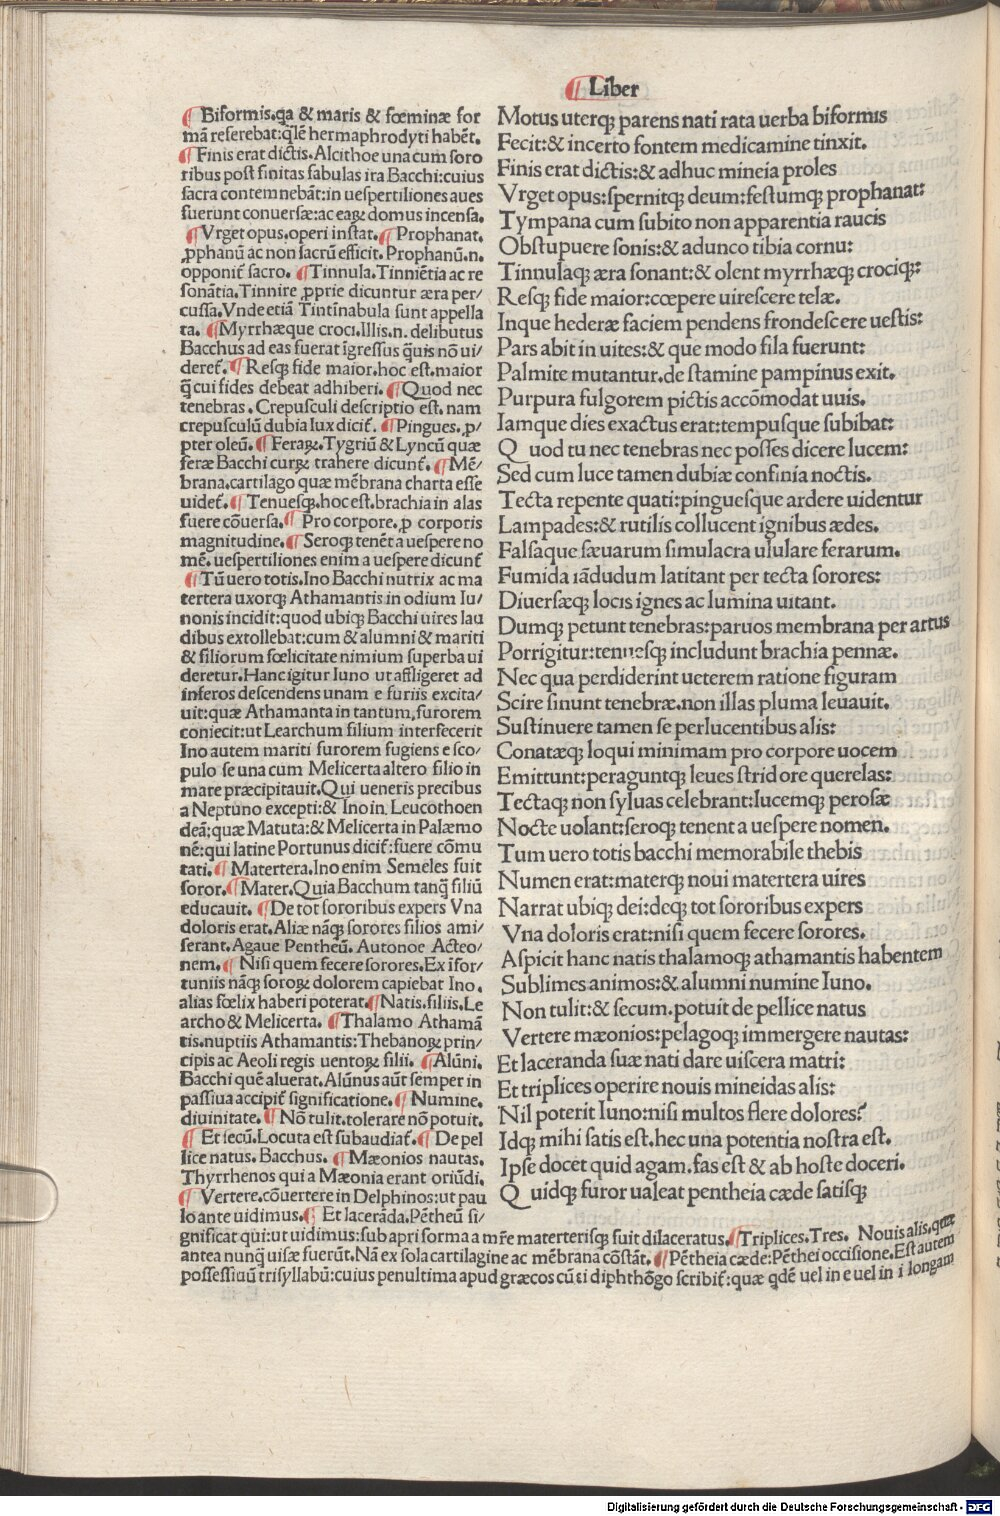 ¶ Liber
¶ Biformis.qa & maris & fœminæ for
mã referebat:q̃lẽ hermaphrodyti habẽt.
¶ Finis erat dictis.Alcithoe una cum soro
ribus post finitas fabulas ira Bacchi:cuius
sacra contemnebãt:in uespertiliones aues
fuerunt conuersæ:ac eaꝝ domus incensa.
¶ Vrget opus.operi instat. ¶ Prophanat.
ꝓphanũ ac non sacrũ efficit. Prophanũ.n.
opponit̃ sacro. ¶ Tinnula.Tinniẽtia ac re
sonãtia.Tinnire ꝓprie dicuntur æra per/
cussa.Vnde etiã Tintinabula sunt appella
ta. ¶ Myrrhæque croci.Illis.n. delibutus
Bacchus ad eas fuerat ĩgressus q̃uis nõ ui/
deret̃. ¶ Resqꝫ fide maior.hoc est.maior
q̃ cui fides debeat adhiberi. ¶ Quod nec
tenebras. Crepusculi descriptio est. nam
crepusculũ dubia lux dicit̃. ¶ Pingues. ꝓ/
pter oleũ. ¶ Feraꝝ.Tygriũ & Lyncũ quæ
feræ Bacchi curꝝ trahere dicunt̃. ¶ Mẽ/
brana.cartilago quæ mẽbrana charta esse
uidet̃. ¶ Tenuesqꝫ.hoc est.brachia in alas
fuere cõuersa. ¶ Pro corpore.ꝓ corporis
magnitudine. ¶ Seroqꝫ tenẽt a uespere no
mẽ. uespertiliones enim a uespere dicunt̃
¶ Tũ uero totis.Ino Bacchi nutrix ac ma
tertera uxorqꝫ Athamantis in odium Iu/
nonis incidit:quod ubiqꝫ Bacchi uires lau
dibus extollebat:cum & alumni & mariti
& filiorum fœlicitate nimium superba ui
deretur.Hanc igitur Iuno ut affligeret ad
inferos descendens unam e furiis excita/
uit:quæ Athamanta in tantum,furorem
coniecit:ut Learchum filium interfecerit
Ino autem mariti furorem fugiens e sco/
pulo se una cum Melicerta altero filio in
mare præcipitauit.Qui ueneris precibus
a Neptuno excepti:& Ino in Leucothoen
deã;quæ Matuta:& Melicerta in Palæmo
nẽ:qui latine Portunus dicit̃:fuere cõmu
tati. ¶ Matertera.Ino enim Semeles fuit
soror. ¶ Mater.Quia Bacchum tanq̃ filiũ
educauit. ¶ De tot sororibus expers Vna
doloris erat.Aliæ nãqꝫ sorores filios ami/
serant.Agaue Pentheũ. Autonoe Acteo/
nem. ¶ Nisi quem fecere sorores.Ex ĩfor/
tuniis nãqꝫ soroꝝ dolorem capiebat Ino.
alias fœlix haberi poterat. ¶ Natis.filiis.Le
archo & Melicerta. ¶ Thalamo Athamã
tis.nuptiis Athamantis:Thebanoꝝ prin/
cipis ac Aeoli regis uentoꝝ filii. ¶ Alũni.
Bacchi quẽ aluerat.Alũnus aũt semper in
passiua accipit̃ significatione. ¶ Numine.
diuinitate. ¶ Nõ tulit.tolerare nõ potuit.
¶ Et secũ.Locuta est subaudiat̃. ¶ De pel
lice natus. Bacchus. ¶ Mæonios nautas.
Thyrrhenos qui a Mæonia erant oriũdi.
¶ Vertere.cõuertere in Delphinos:ut pau
lo ante uidimus. ¶ Et lacerãda.Pẽtheũ si/
gnificat qui:ut uidimus:sub apri forma a mr̃e materterisqꝫ fuit dilaceratus. ¶ Triplices.Tres. Nouis alis.quæ
antea nunq̃ uisæ fuerũt. Nã ex sola cartilagine ac mẽbrana cõstãt. ¶ Pẽtheia cæde:Pẽthei occisione.Est autem
possessiuũ trisyllabũ:cuius penultima apud græcos cũ ει diphthõgo scribit̃:quæ q̃dẽ uel in e uel in i longam
Motus uterqꝫ parens nati rata uerba biformis
Fecit:& incerto fontem medicamine tinxit.
Finis erat dictis:& adhuc mineia proles
Vrget opus:spernitqꝫ deum:festumqꝫ prophanat:
Tympana cum subito non apparentia raucis
Obstupuere sonis:& adunco tibia cornu:
Tinnulaqꝫ æra sonant:& olent myrrhæqꝫ crociqꝫ:
Resqꝫ fide maior:cœpere uirescere telæ.
Inque hederæ faciem pendens frondescere uestis:
Pars abit in uites:& que modo fila fuerunt:
Palmite mutantur.de stamine pampinus exit.
Purpura fulgorem pictis accõmodat uuis.
Iamque dies exactus erat:tempusque subibat:
Q uod tu nec tenebras nec posses dicere lucem:
Sed cum luce tamen dubiæ confinia noctis.
Tecta repente quati:pinguesque ardere uidentur
Lampades:& rutilis collucent ignibus ædes.
Falsaque sæuarum simulacra ululare ferarum.
Fumida iãdudum latitant per tecta sorores:
Diuersæqꝫ locis ignes ac lumina uitant.
Dumqꝫ petunt tenebras:paruos membrana per artus
Porrigitur:tenuesqꝫ includunt brachia pennæ.
Nec qua perdiderint ueterem ratione figuram
Scire sinunt tenebræ.non illas pluma leuauit.
Sustinuere tamen se perlucentibus alis:
Conatæqꝫ loqui minimam pro corpore uocem
Emittunt:peraguntqꝫ leues stridore querelas:
Tectaqꝫ non syluas celebrant:lucemqꝫ perosæ
Nocte uolant:seroqꝫ tenent a uespere nomen.
Tum uero totis bacchi memorabile thebis
Numen erat:materqꝫ noui matertera uires
Narrat ubiqꝫ dei:deqꝫ tot sororibus expers
Vna doloris erat:nisi quem fecere sorores.
Aspicit hanc natis thalamoqꝫ athamantis habentem
Sublimes animos:& alumni numine Iuno.
Non tulit:& secum.potuit de pellice natus
Vertere mæonios:pelagoqꝫ immergere nautas:
Et laceranda suæ nati dare uiscera matri:
Et triplices operire nouis mineidas alis:
Nil poterit Iuno:nisi multos flere dolores?
Idqꝫ mihi satis est.hec una potentia nostra est.
Ipse docet quid agam.fas est & ab hoste doceri.
Q uidqꝫ furor ualeat pentheia cæde satisqꝫ
Digitalisierung gefördert durch die Deutsche Forschungsgemeinschaft - DFG